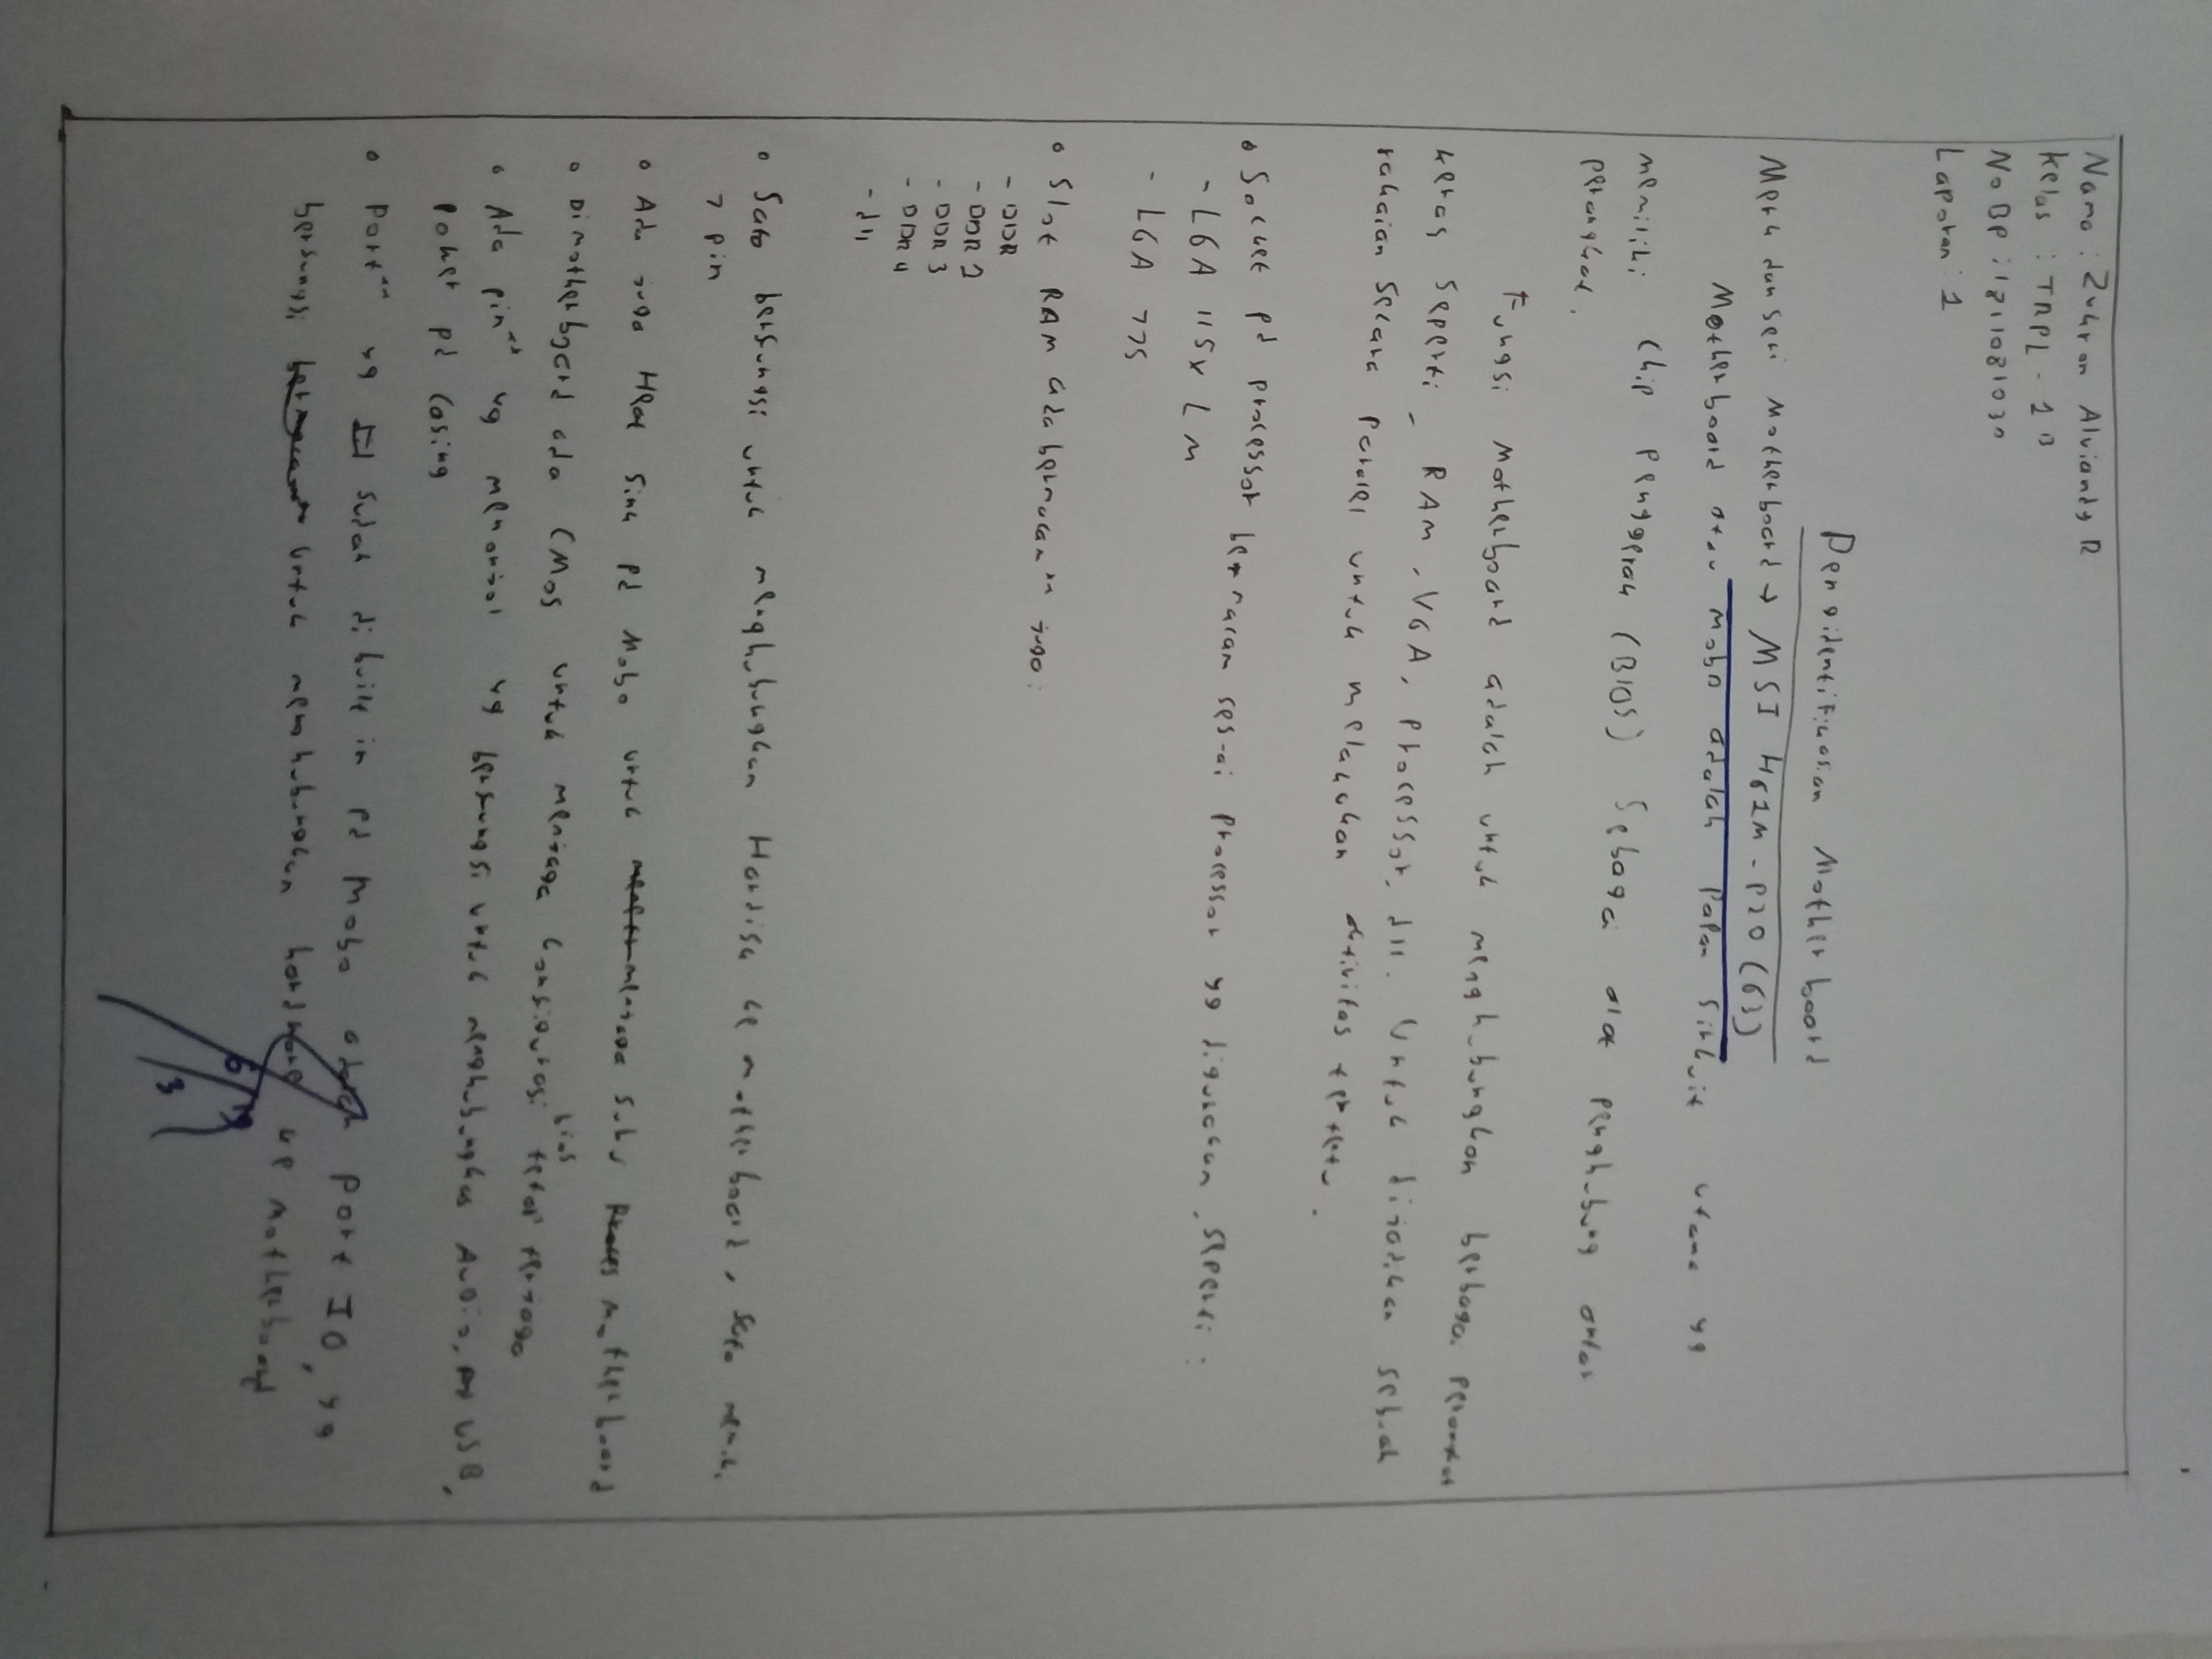 Nama : Zukron Alviandy R
Kelas : TRPL - 1 B
No BP : 1811081030
Laporan : 1
Pengidentifikasian Motherboard
Merk dan seri Motherboard → MSI H61M - P20 (G3)
Motherboard atau mobo adalah papan sirkuit utama yg
memiliki chip penggerak (BIOS) sebagai alat penghubung antar
perangkat.
Fungsi Motherboard adalah untuk menghubungkan berbagai perangkat
keras seperti, RAM, VGA, Processor, dll. Untuk dijadikan sebuah
rakaian secara paralel untuk melakukan aktivitas tertetu.
• Socket pd processor bermacam sesuai processor yg digunakan, seperti :
- LGA 115x LM
- LGA 775
• Slot RAM ada bermacam" juga :
- DDR
- DDR 2
- DDR 3
- DDR 4
- dll
• Sata berfungsi untuk menghubungkan Hardisk ke motherboard, sata memiki
7 pin
• Ada juga Heat Sink pd Mobo untuk menjaga suhu motherboard
• Dimotherboard ada CMos untuk menjaga konfigurasi bios tetap terjaga
• Ada pin" yg menonjol yg berfungsi untuk menghubungkas Audio, USB,
Power pd Casing
• Port" yg sudah di built in pd Mobo adalah port IO, yg
berfungsi untuk menghubungkan hardware ke motherboard
6 / 19
3